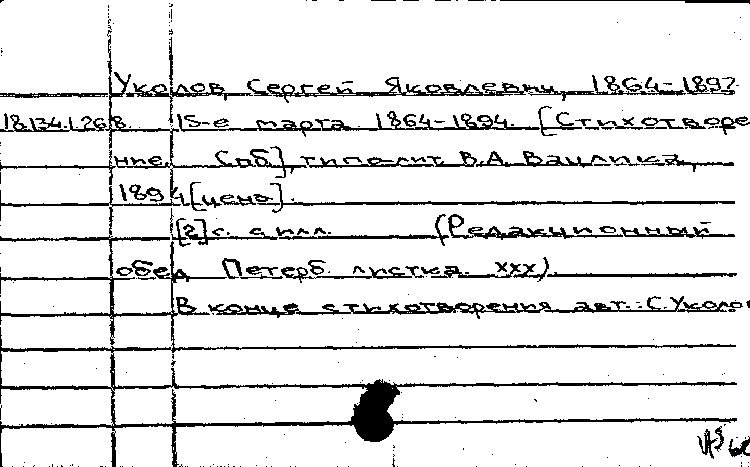 Уколов, Сергей Яковлевич, 1864-1897
18.134.1.268. 15-е марта 1864-1894. [Стихотворе
ние. Спб], типо-лит. В.А. Вацлика,
1894 [ценз.].
[2] с. с илл. (Редакционный
обед Петерб. листка. XXX).
В конце стихотворения авт.: С. Уколов